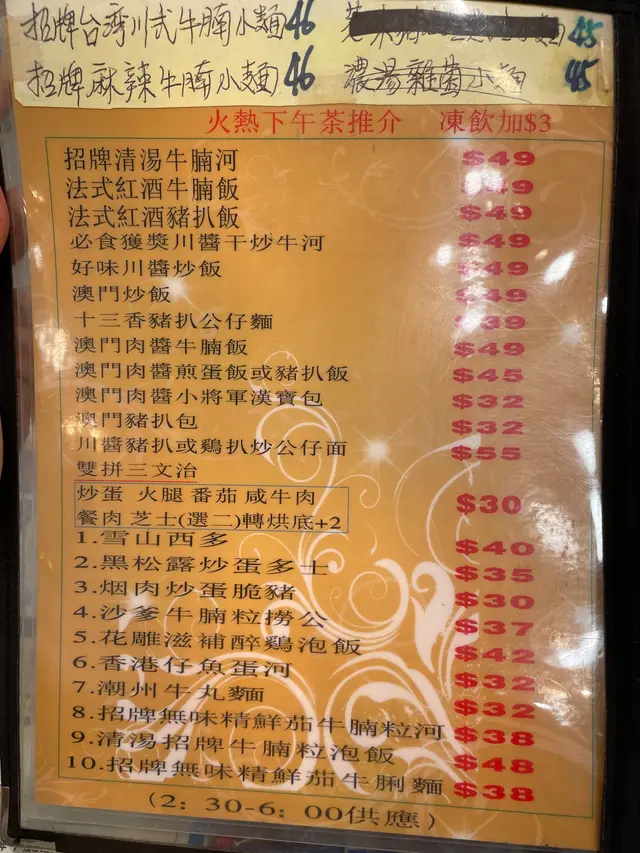 招牌台灣川式牛腩小麵46
45
招牌麻辣牛腩小麵46
濃湯雜菌小麵 45
火熱下午茶推介 凍飲加$3
招牌清湯牛腩河 $49
法式紅酒牛腩飯 $49
法式紅酒豬扒飯 $49
必食獲獎川醬干炒牛河 $49
好味川醬炒飯 $49
澳門炒飯 $49
十三香豬扒公仔麵 $39
澳門肉醬牛腩飯 $49
澳門肉醬煎蛋飯或豬扒飯 $45
澳門肉醬小將軍漢寶包 $32
澳門豬扒包 $32
川醬豬扒或鷄扒炒公仔面 $55
雙拼三文治
炒蛋 火腿 番茄 咸牛肉
餐肉 芝士(選二)轉烘底+2 $30
1.雪山西多 $40
2.黑松露炒蛋多士 $35
3.烟肉炒蛋脆豬 $30
4.沙爹牛腩粒撈公 $37
5.花雕滋補醉鷄泡飯 $42
6.香港仔魚蛋河 $32
7.潮州牛丸麵 $32
8.招牌無味精鮮茄牛腩粒河 $38
9.清湯招牌牛腩粒泡飯 $48
10.招牌無味精鮮茄牛脷麵 $38
（2：30-6：00供應）